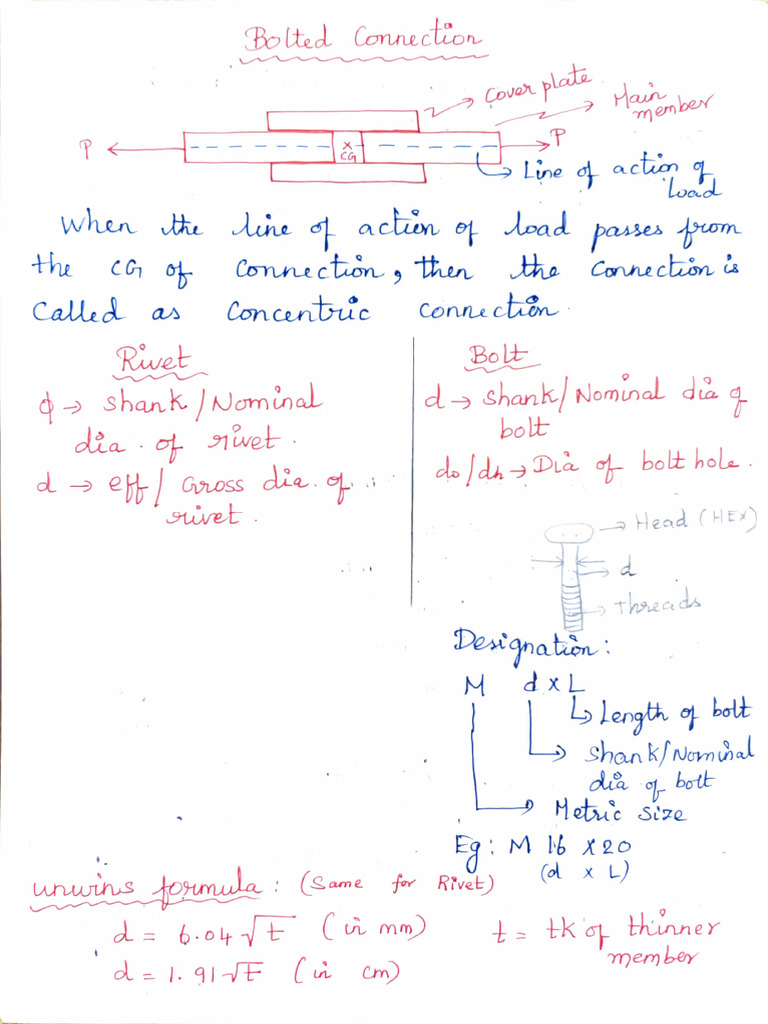 Bolted Connection
Cover plate
Main
member
P
P
CG
Line of action of
load
When the line of action of load passes from
the CG of connection, then the connection is
called as concentric connection.
Rivet
ϕ → shank/Nominal
dia. of rivet.
d → eff/Gross dia. of
rivet.
Bolt
d → shank/Nominal dia of
bolt
do/dh → Dia of bolt hole.
Head (HEX)
d
threads
Designation:
M d x L
Length of bolt
shank/Nominal
dia of bolt
Metric size
Eg: M 16 x 20
(d x L)
unwins formula: (Same for Rivet)
d = 6.04√t (in mm)
d = 1.91√t (in cm)
t = tk of thinner
member